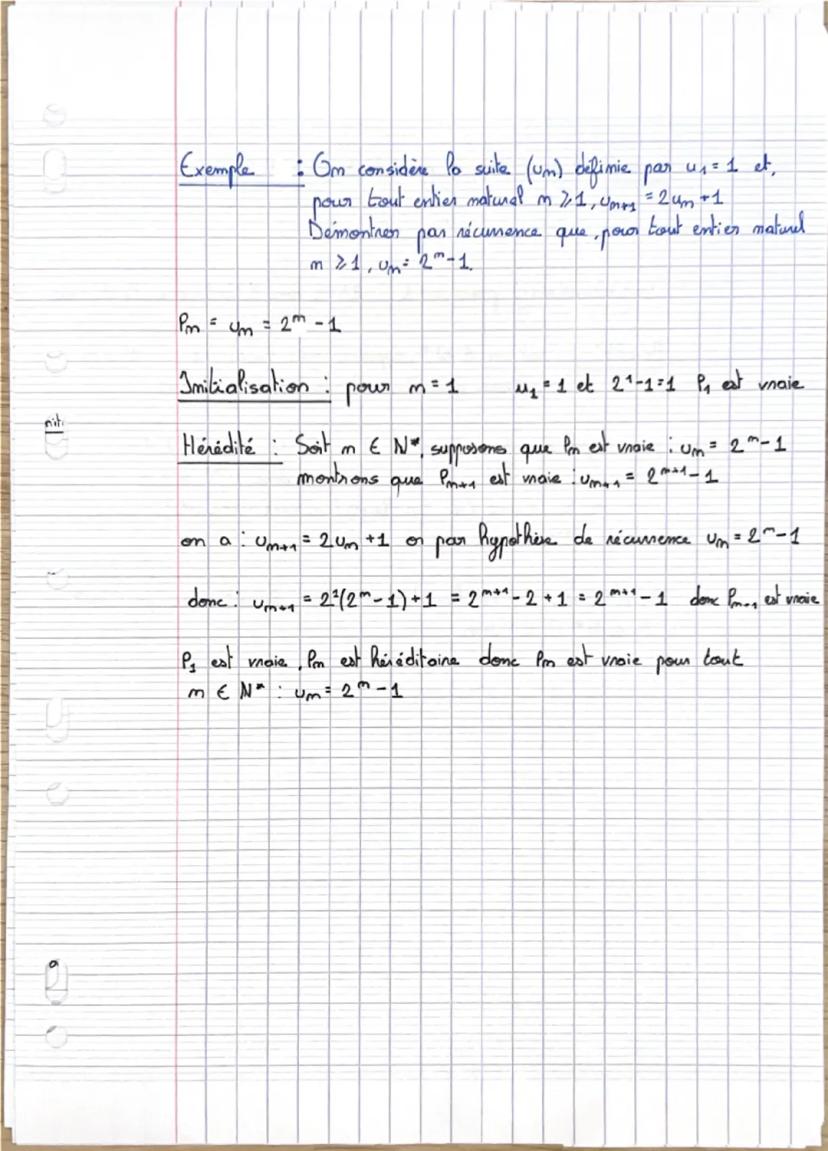 Exemple : On considère la suite (un) définie par u₁ = 1 et,
pour tout entier naturel n ⩾ 1, uₙ₊₁ = 2uₙ + 1
Démontrer par récurrence que, pour tout entier naturel
n ⩾ 1, uₙ = 2ⁿ - 1.
Pₙ = uₙ = 2ⁿ - 1
Initialisation : pour n = 1 u₁ = 1 et 2¹-1=1 P₁ est vraie
nit.
Hérédité : Soit n ∈ N*, supposons que Pₙ est vraie : uₙ = 2ⁿ-1
montrons que Pₙ₊₁ est vraie : uₙ₊₁ = 2ⁿ⁺¹ - 1
on a : uₙ₊₁ = 2uₙ + 1 or par hypothèse de récurrence uₙ = 2ⁿ-1
donc : uₙ₊₁ = 2¹(2ⁿ-1)+1 = 2ⁿ⁺¹ - 2 + 1 = 2ⁿ⁺¹ - 1 donc Pₙ₊₁ est vraie
P₁ est vraie, Pₙ est héréditaire donc Pₙ est vraie pour tout
n ∈ N* : uₙ = 2ⁿ - 1